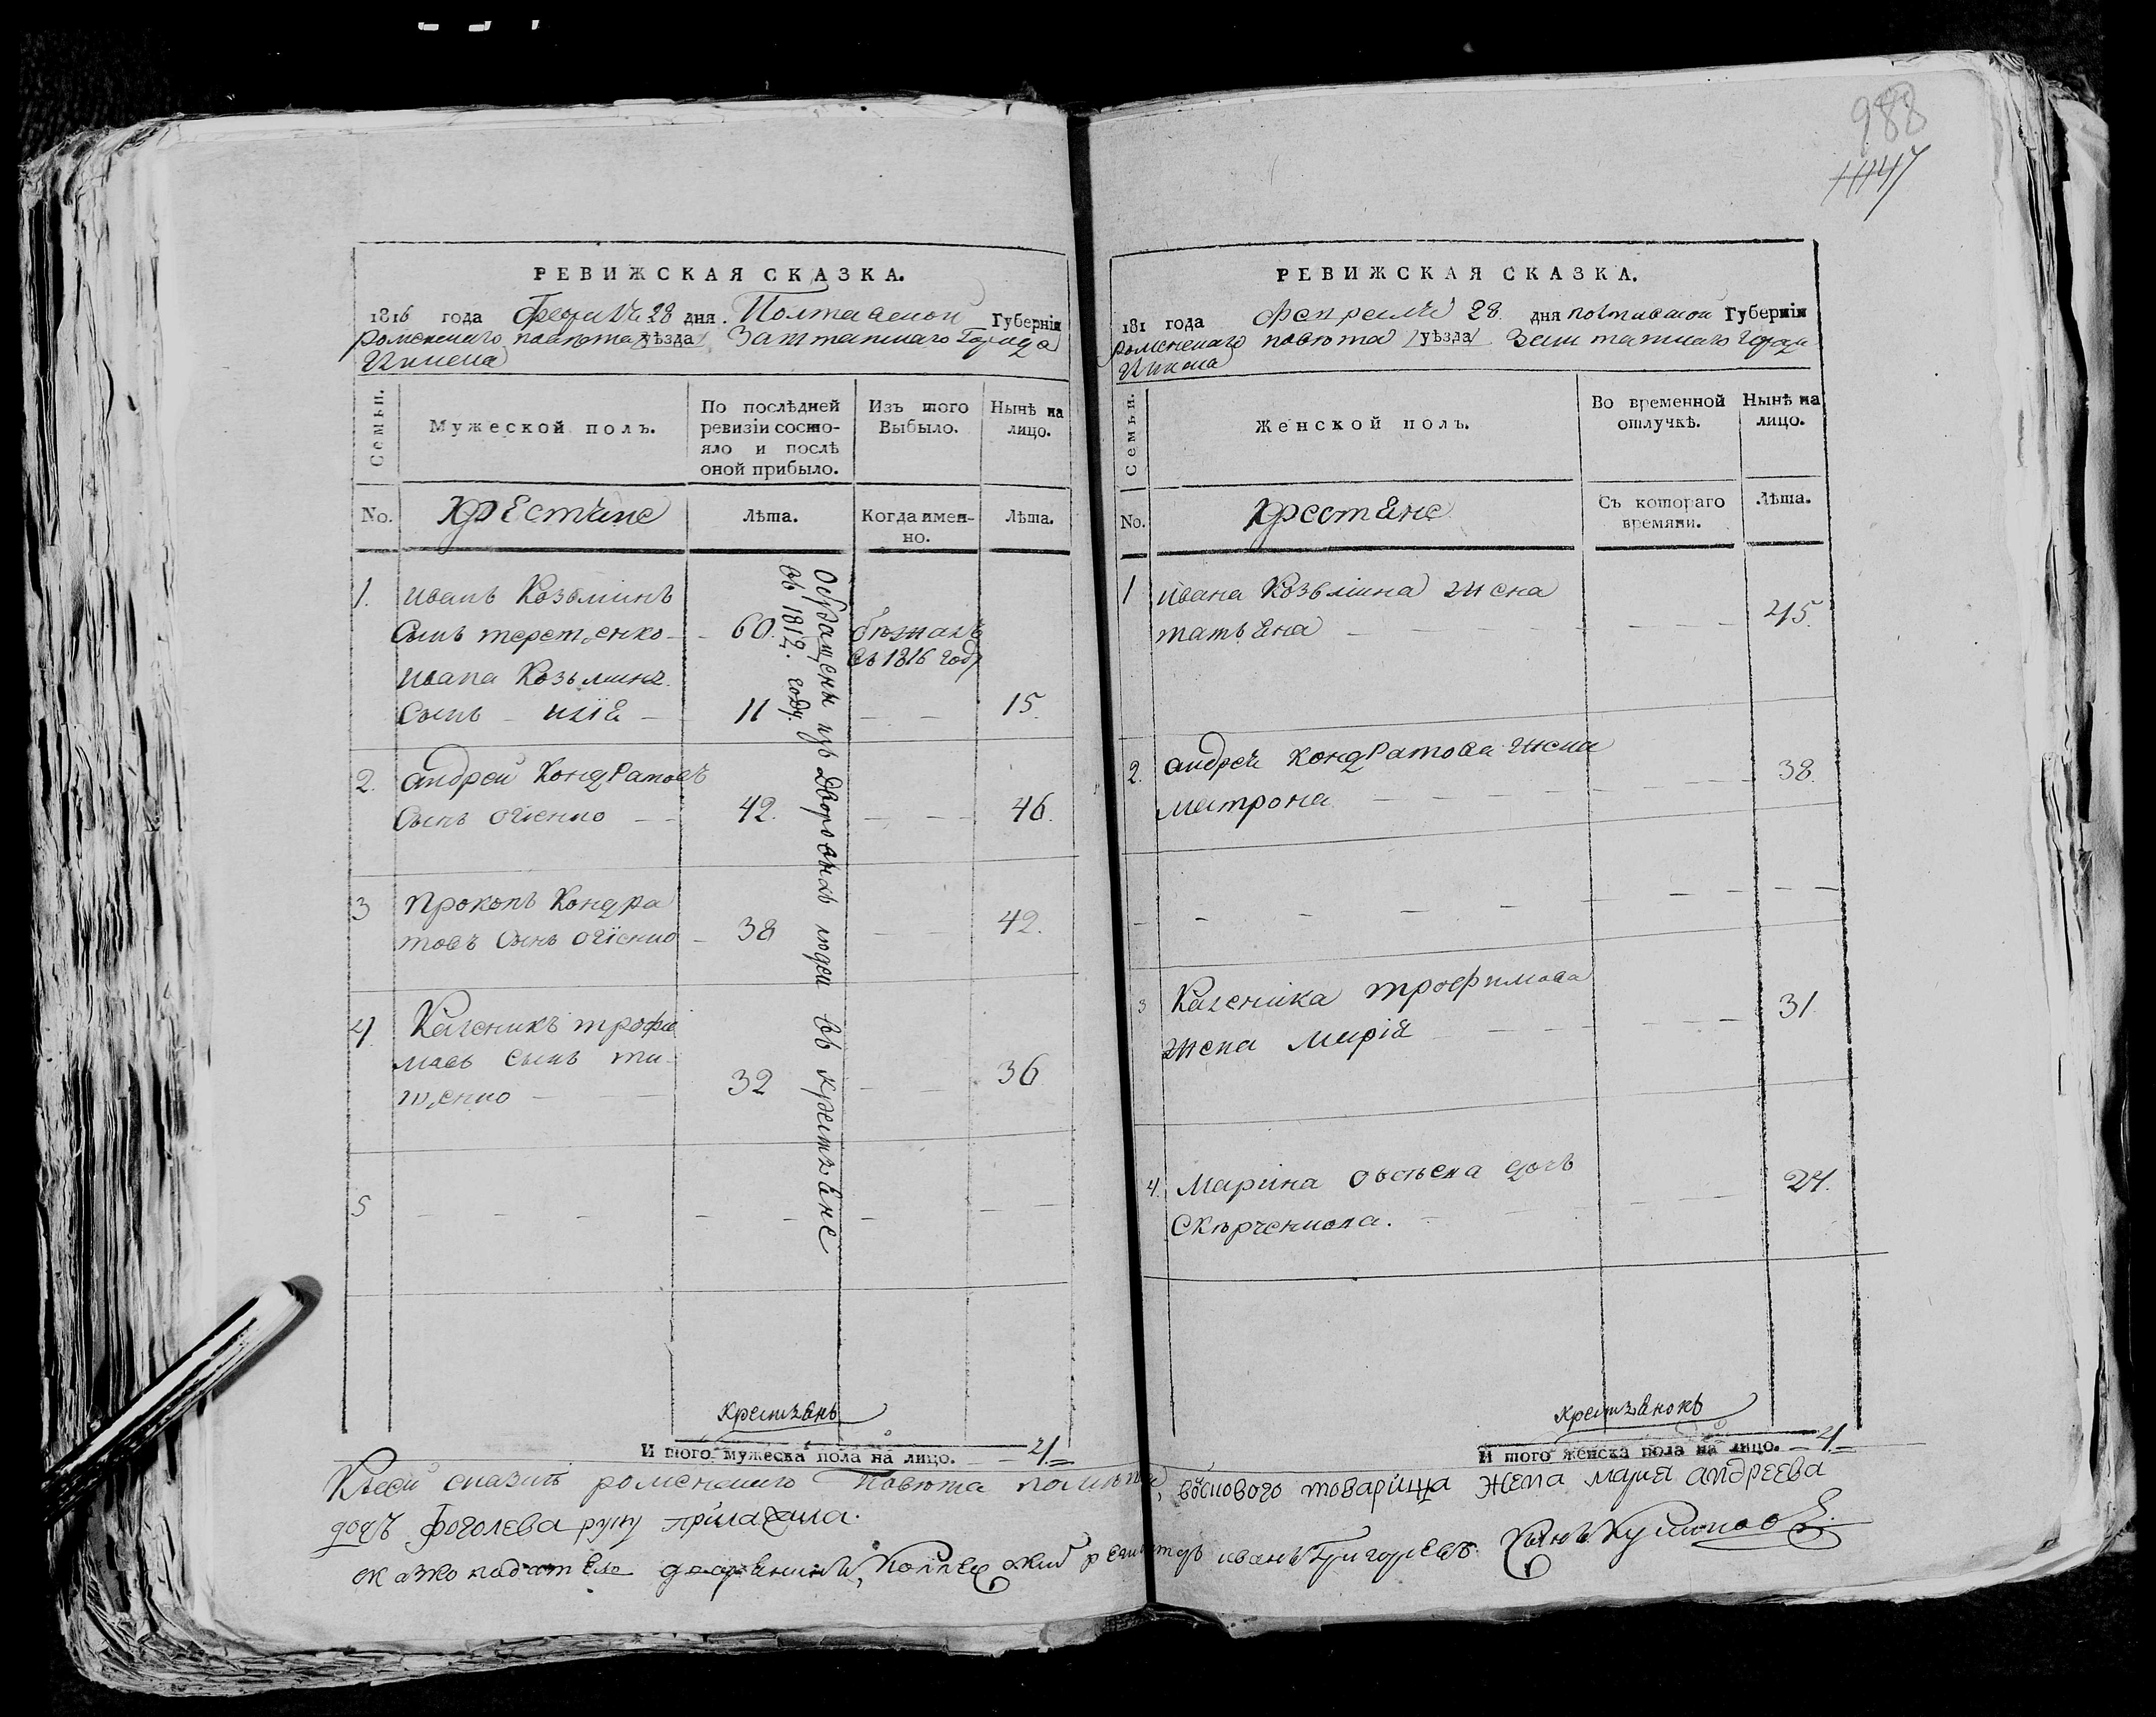 988
1147
РЕВИЖСКАЯ СКАЗКА.
1816 года февраля 28 дня. Полтавской Губерніи
роменского повѣта /уѣзда/ Заштатного Города
Глинска
Семьи.
Мужеской полъ.
По послѣдней ревизіи состояло и послѣ оной прибыло.
Изъ того Выбыло.
Нынѣ на лицо.
No.
Крестяне
Лѣта.
Когда именно.
Лѣта.
1. иванъ Козьминъ
Сынъ терещенко 60. бежалъ
въ 1816 году
ивана Козьмина
Сынъ илія 11 15.
2. андрей Кондратовъ
Сынъ огіенко 42. 46.
3 прокопъ Кондра
товъ Сынъ огіенко 38 42.
4. Каленикъ трофи
мовъ сынъ ти
щенко 32 36
5
Обращены изъ дворовыхъ людей въ крестьяне
въ 1812. году.
крестьянъ
И того мужеска пола на лицо. 4
РЕВИЖСКАЯ СКАЗКА.
181 года февраля 28. дня полтавской Губерніи
роменского повѣта /уѣзда/ Заштатного города
Семьи.
Женской полъ.
Во временной отлучкѣ.
Нынѣ на лицо.
No.
крестяне
Съ котораго времяни.
Лѣта.
1 ивана Козьмина жена
татьяна 45.
2. андрея кондратова жена
матрона 38.
3 Каленика трофимова
жена марія 31.
4. Марина дочъ
24.
крестьянокъ
И того женска пола на лицо. 4
К сей сказки роменского Повѣта войскового товарища Жена мария андреева
дочъ руку приложила.
иванъ Григорьевъ Сынъ